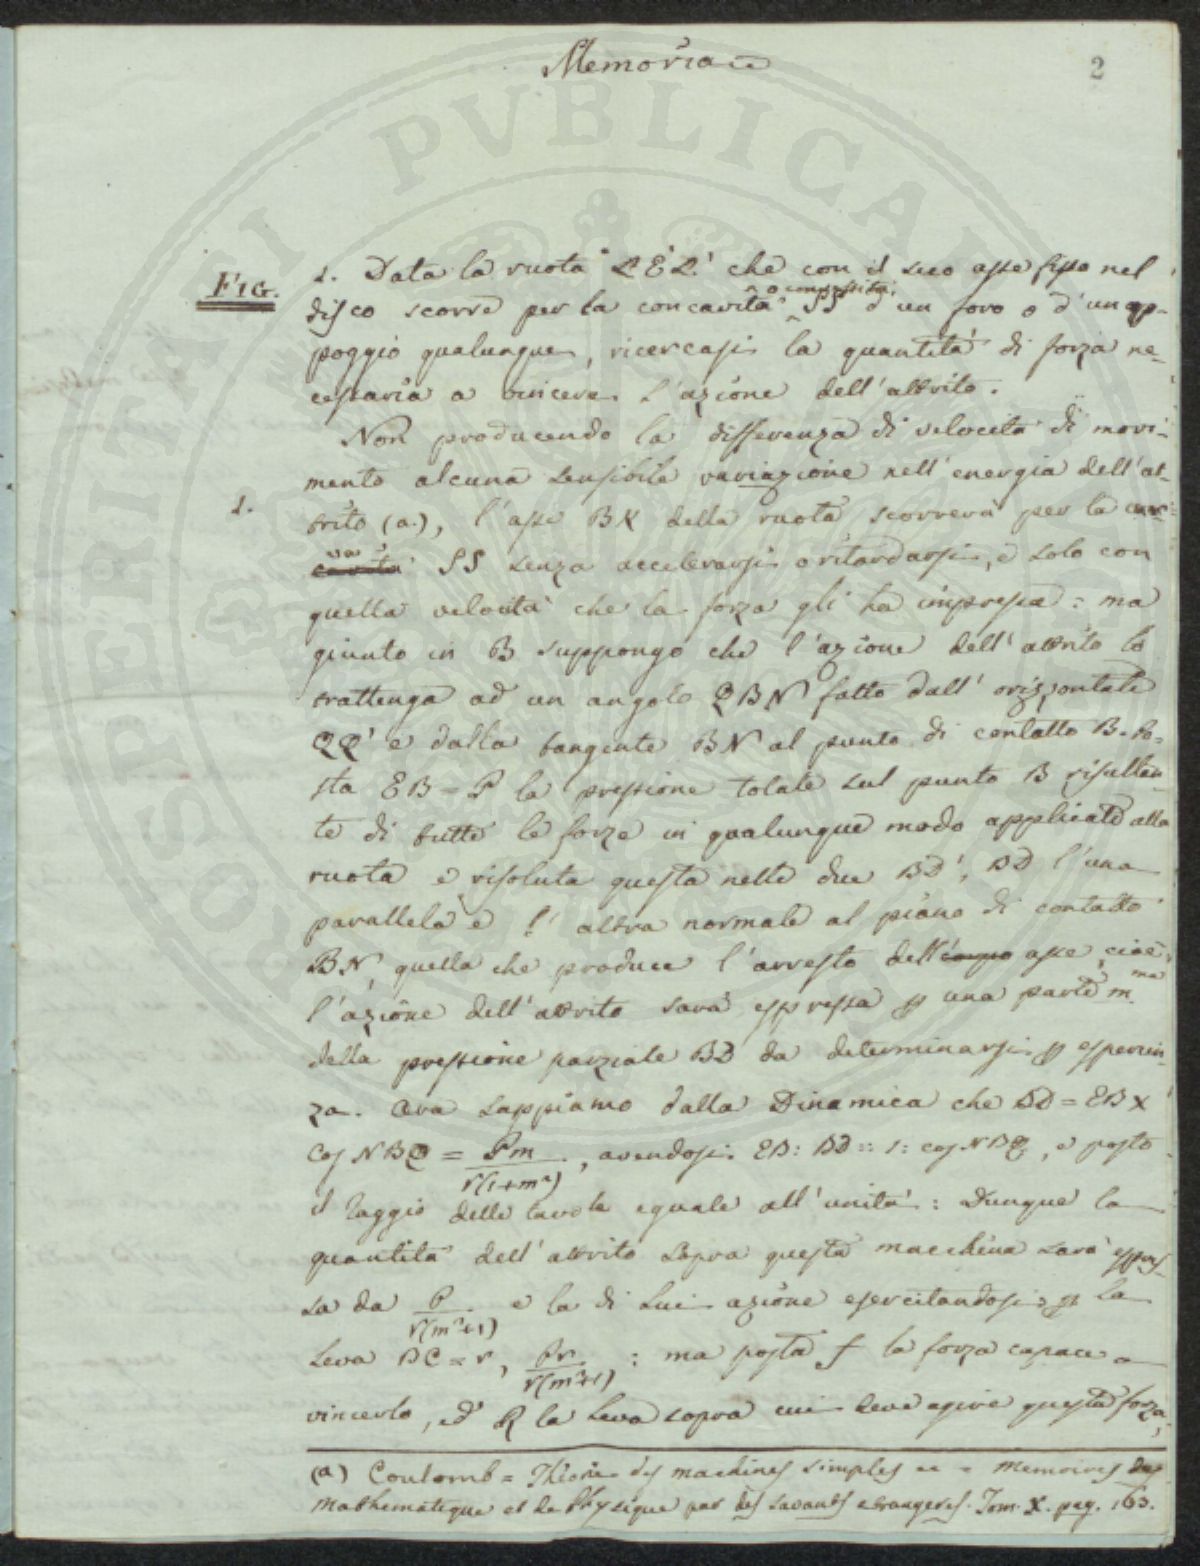 Memoria
2
FIG.
1. Data la ruota LEL' che con il suo asse fisso nel
o convessità
disco scorre per la concavità SS d'un foro o d'un ap-
poggio qualunque, ricercasi la quantità di forza ne-
cessaria a vincere l'azione dell'attrito.
Non producendo la differenza di velocità di movi-
mento alcuna sensibile variazione nell'energia dell'at-
1.
trito (a), l'asse BK della ruota scorrerà per la cur-
va SS senza accelerarsi o ritardarsi, e solo con
quella velocità che la forza gli ha impressa: ma
giunto in B suppongo che l'azione dell'attrito lo
trattenga ad un angolo QBN fatto dall'orizzontale
QQ' e dalla tangente BN al punto di contatto B. Po-
sta EB = P la pressione totale sul punto B risultan-
te di tutte le forze in qualunque modo applicate alla
ruota e risoluta questa nelle due BD', BD l'una
parallela e l'altra normale al piano di contatto
BN, quella che produce l'arresto dell' asse, cioè
l'azione dell'attrito sarà espressa p una parte m.ma
della pressione parziale BD da determinarsi p esperien-
za. Ora sappiamo dalla Dinamica che BD = EB x
cos NBQ = Pm / r(1+m²), avendosi EB : BD :: 1 : cos NBQ, e posto
il raggio delle tavole eguale all'unità: Dunque la
quantità dell'attrito sopra questa macchina sarà espres-
sa da P / r(m²+1) e la di lui azione esercitandosi p la
leva BC = r, Pr / r(m²+1) : ma posta f la forza capace a
vincerlo, ed R la leva sopra cui deve agire questa forza,
(a) Coulomb = Théorie des machines simples = Memoires des
Mathematique et de Physique par des savants etrangeres. Tom. X. pag. 163.